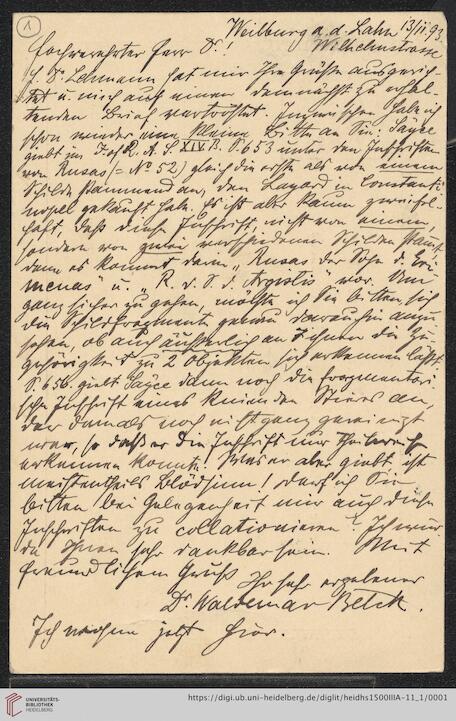 (1)
Weilburg a. d. Lahn 13/II 93.
Wilhelmstrasse
Hochverehrter Herr Dr.!
H. Dr. Lehmann hat mir Ihre Grüße ausgerich-
tet u. mich auf einen demnächst zu erhal-
tenden Brief vertröstet. Inzwischen habe ich
schon wieder eine kleine Bitte an Sie: Sayce
giebt im J. of R. A. S. XIV. B. S. 653 unter den Inschriften
von Rusas (= No 52) gleich die erste als von einem
Schilde stammend an, den Layard in Constanti-
nopel gekauft habe. Es ist aber kaum zweifel-
haft, daß diese Inschrift nicht von einem,
sondern von zwei verschiedenen Schilden stammt,
denn es kommt darin "Rusas der Sohn d. Eri-
menas" u. "R. d. S. d. Argistis" vor. Um
ganz sicher zu gehen, möchte ich Sie bitten, sich
die Schildfragmente genau daraufhin anzu-
sehen, ob auch äußerlich an ihnen die Zu-
gehörigkeit zu 2 Objekten sich erkennen läßt.
S. 656. giebt Sayce dann noch die fragmentari-
sche Inschrift eines knienden Stieres an,
der damals noch nicht ganz gereinigt
war, so daß er die Inschrift nur theilweise
erkennen konnte! Was er aber giebt ist
meistentheils Blödsinn! Darf ich Sie
bitten bei Gelegenheit mir auch diese
Inschriften zu collationieren? Ich wür-
de Ihnen sehr dankbar sein. Mit
freundlichem Gruß
Ihr sehr ergebener
Dr. Waldemar Belck.
Ich wohne jetzt hier.
UNIVERSITÄTS-
BIBLIOTHEK
HEIDELBERG
https://digi.ub.uni-heidelberg.de/diglit/heidhs1500IIIA-11_1/0001